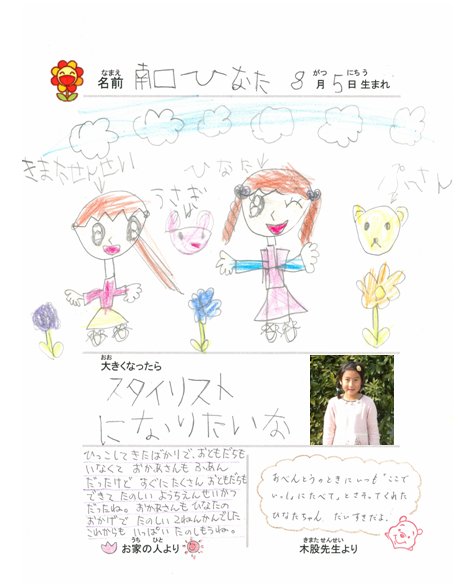 なまえ がつ にち う
名前 南口 ひなた 8 月 5 日生まれ
きまたせんせい ひなた ぷーさん
うさぎ
おお
大きくなったら
スタイリスト
になりたいな
ひっこしてきたばかりで、おともだちも
いなくて おかあさんも ふあん
だったけど すぐにたくさん おともだちも
できて たのしい ようちえんせいかつ
だったね。おかあさんも ひなたの
おかげで たのしい 2ねんかんでした
これからも いっぱい たのしもうね。
うち ひと
お家の人より
おべんとうのときに いつも"ここで
いっしょにたべて。"とさそってくれた
ひなたちゃん だいすきだよ。
きまた せんせい
木股先生より